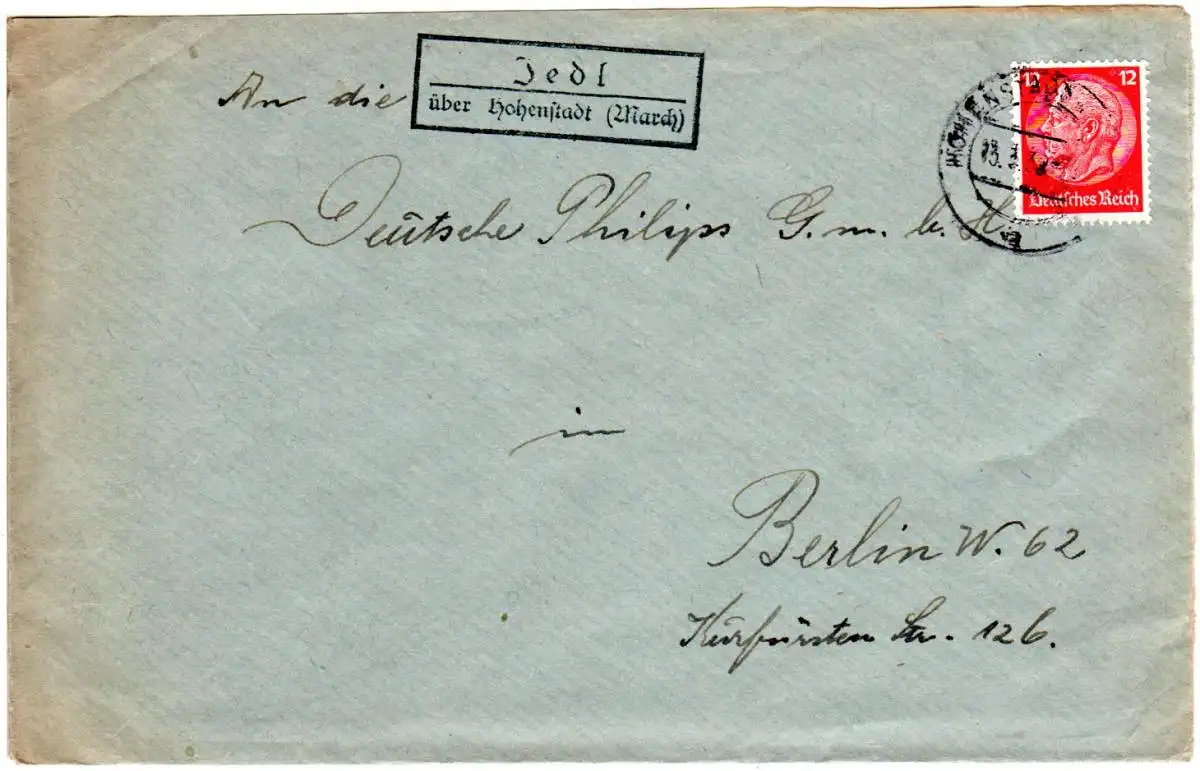 Jedl
über Hohenstadt (March)
12 12
Deutsches Reich
An die
Deutsche Philips G. m. b. H.
in
Berlin W. 62
Kurfürsten Str. 126.